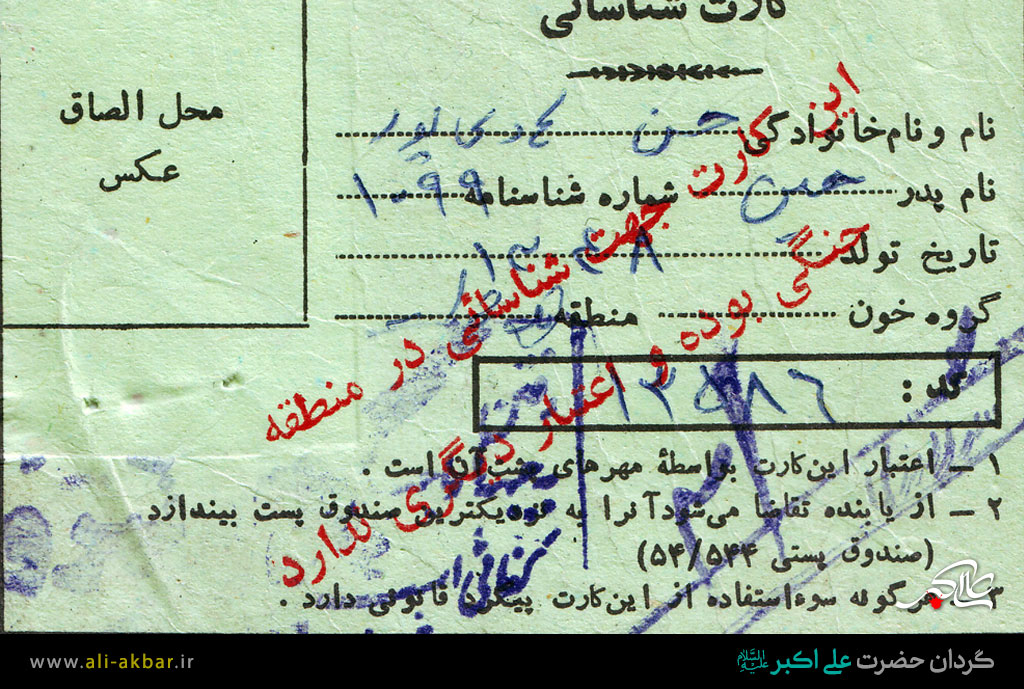 کارت شناسائی
محل الصاق
عکس
نام و نام‌خانوادگی حسن
نام پدر حسن شماره شناسنامه ۱۰۹۹
تاریخ تولد ۱۳۴۸
گروه خون منطقه
کد : ۱۳۵۸۶
این کارت جهت شناسائی در منطقه
جنگی بوده و اعتبار دیگری ندارد
۱ – اعتبار این‌کارت بواسطهٔ مهرهای پشت‌آن است .
۲ – از یابنده تقاضا می‌شود آنرا به نزدیکترین صندوق پست بیندازد
(صندوق پستی ۵۴/۵۴۴)
۳ – هرگونه سوء‌استفاده از این‌کارت پیگرد قانونی دارد .
علی اکبر
www.ali-akbar.ir
گردان حضرت علی اکبر علیه السلام